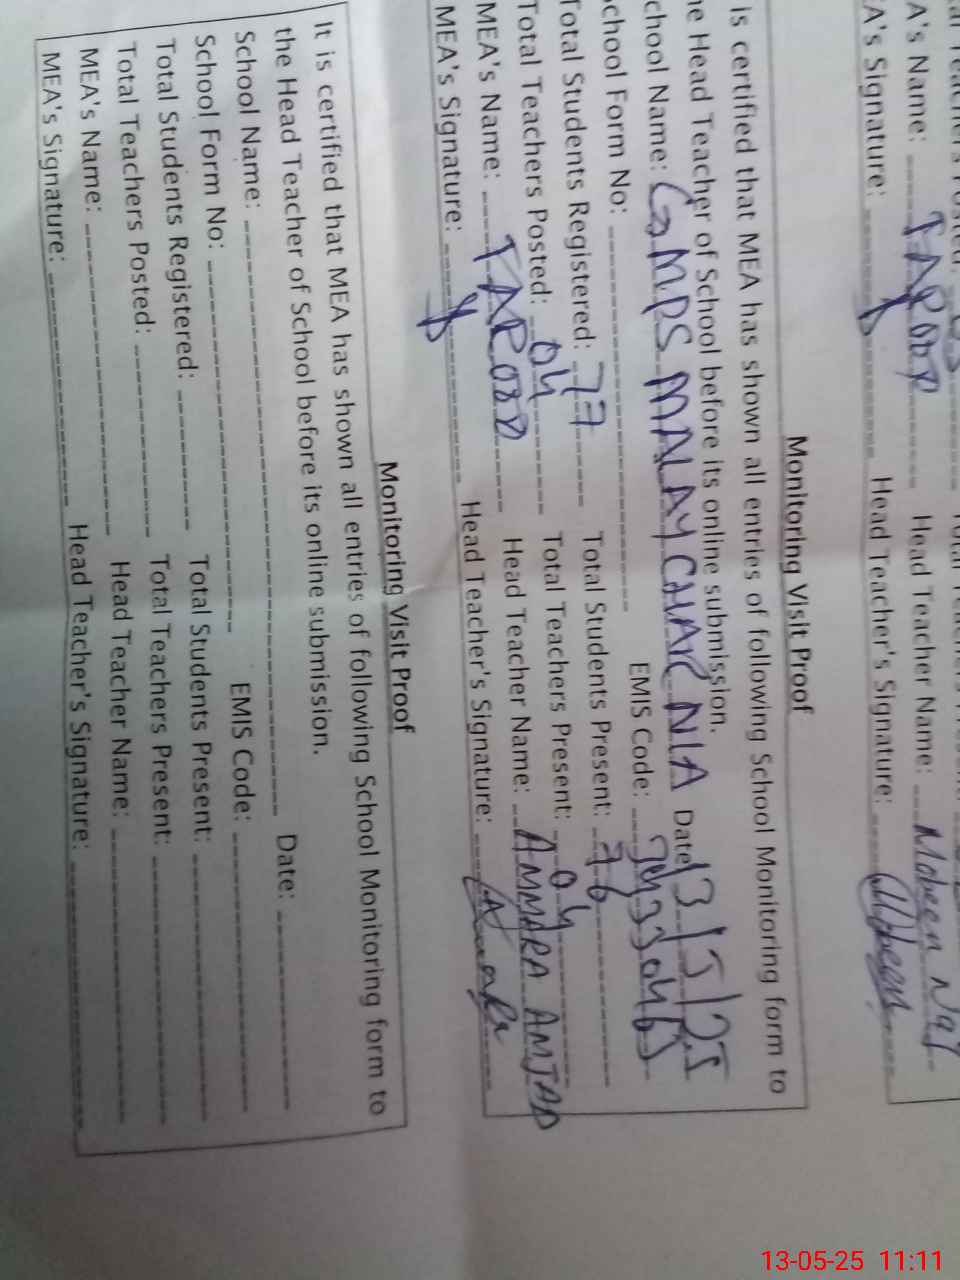 A's Name: TAROOP Head Teacher Name: Mobeen
A's Signature: Head Teacher's Signature: Mobeen
Monitoring Visit Proof
is certified that MEA has shown all entries of following School Monitoring form to
he Head Teacher of School before its online submission.
chool Name: GGMPS MALAY CHAK NIA Date 13/5/25
chool Form No: EMIS Code: 34330465
Total Students Registered: 77 Total Students Present: 76
Total Teachers Posted: 04 Total Teachers Present: 04
MEA's Name: TAROOP Head Teacher Name: AMMARA AMJAD
MEA's Signature: Head Teacher's Signature:
Monitoring Visit Proof
It is certified that MEA has shown all entries of following School Monitoring form to
the Head Teacher of School before its online submission.
School Name: Date:
School Form No: EMIS Code:
Total Students Registered: Total Students Present:
Total Teachers Posted: Total Teachers Present:
MEA's Name: Head Teacher Name:
MEA's Signature: Head Teacher's Signature:
13-05-25 11:11